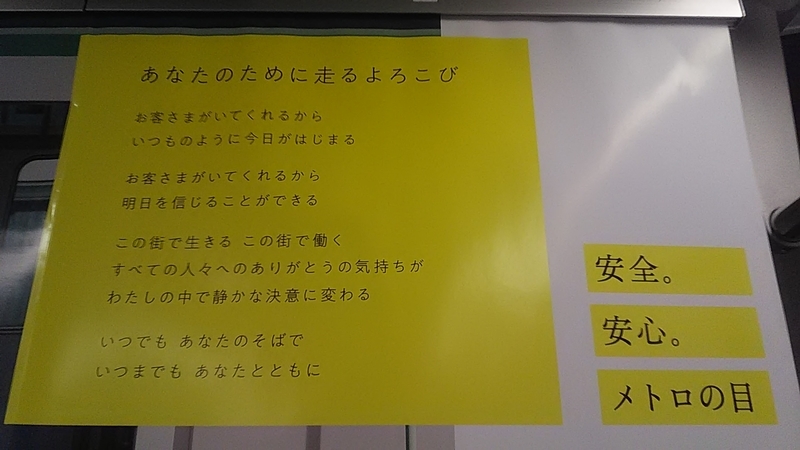 あなたのために走るよろこび
お客さまがいてくれるから
いつものように今日がはじまる
お客さまがいてくれるから
明日を信じることができる
この街で生きる この街で働く
すべての人々へのありがとうの気持ちが
わたしの中で静かな決意に変わる
いつでも あなたのそばで
いつまでも あなたとともに
安全。
安心。
メトロの目